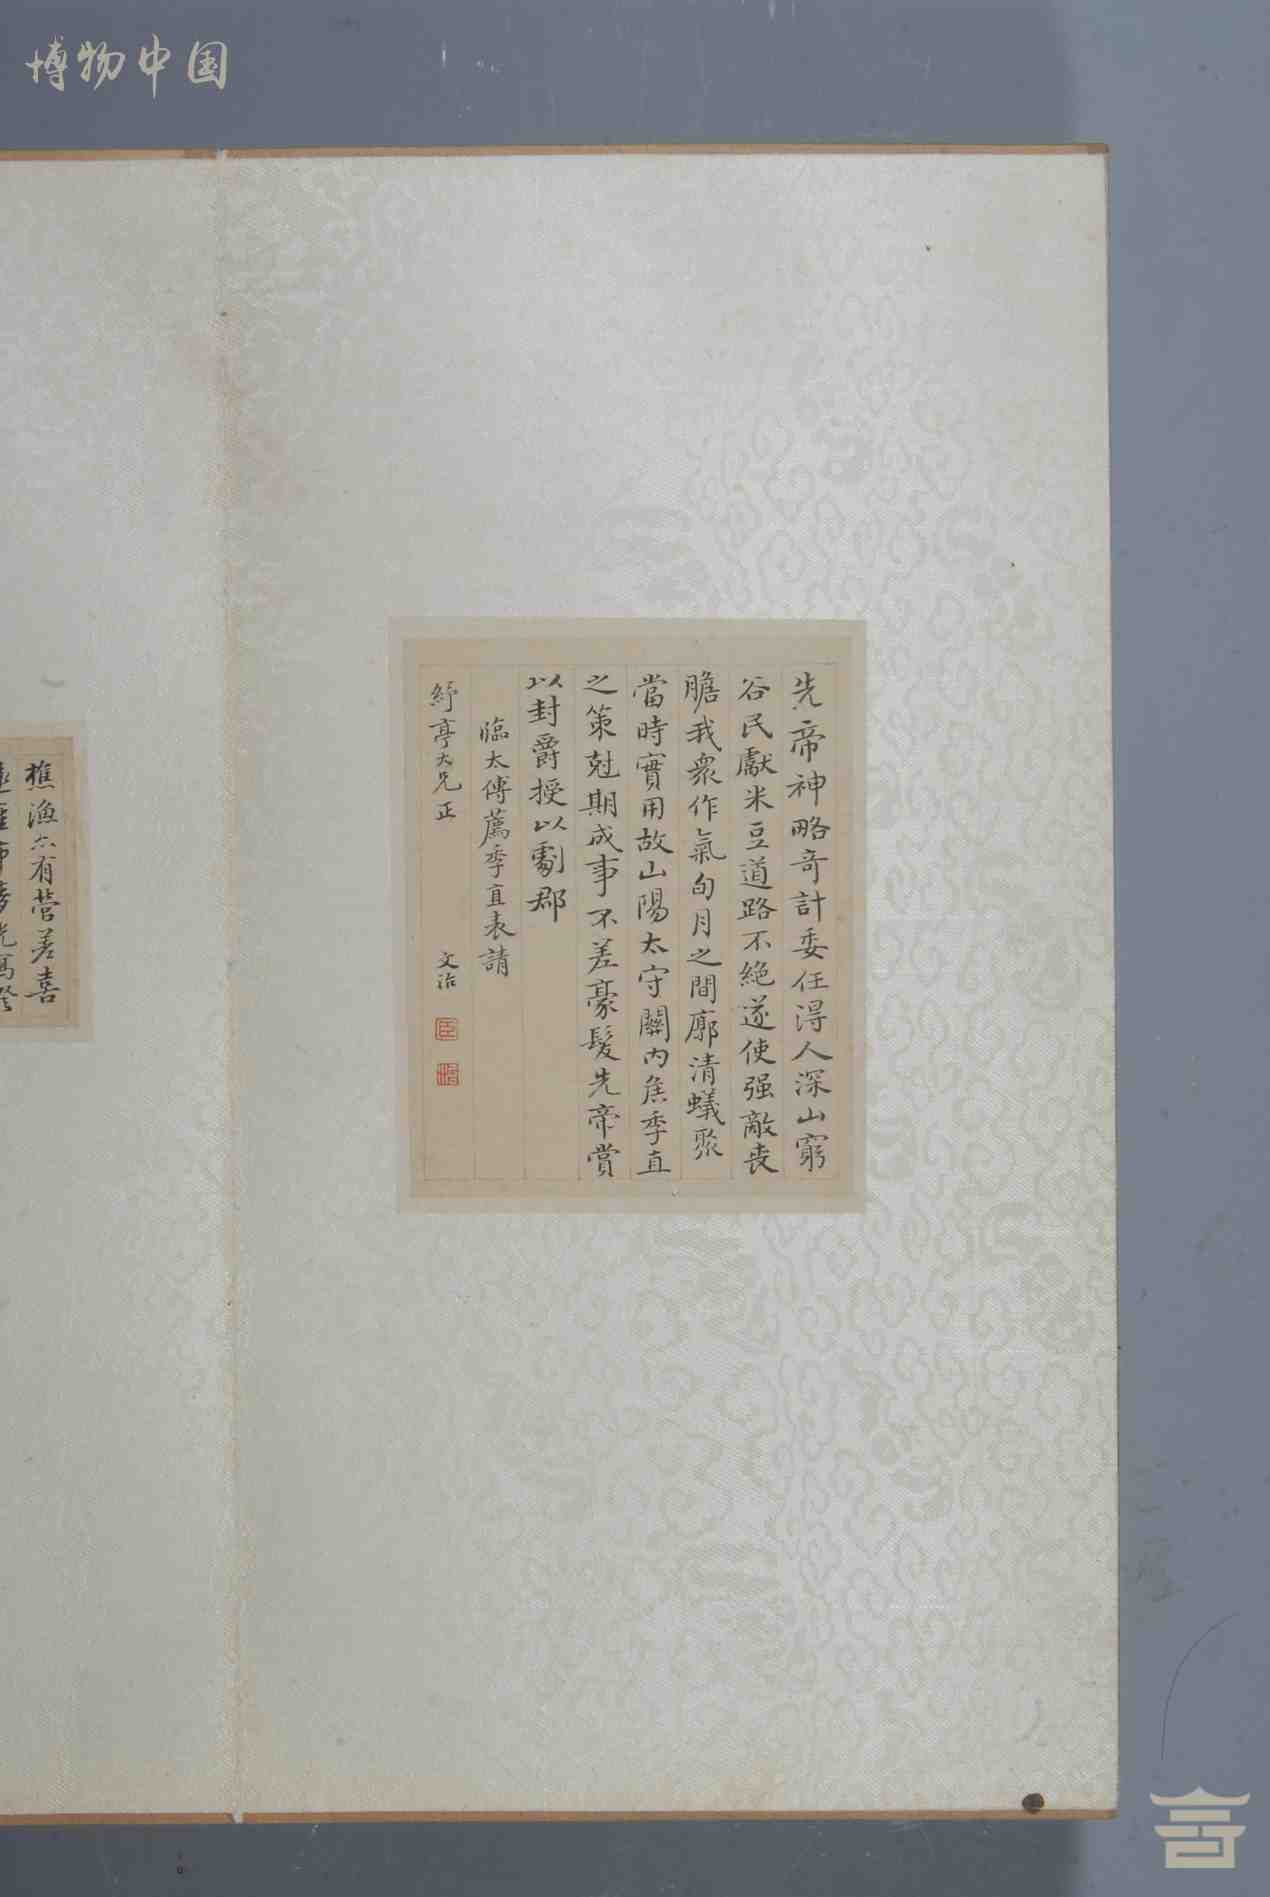 博物中国
先帝神略奇計委任得人深山窮
谷民獻米豆道路不絶遂使强敵喪
膽我衆作氣旬月之間廓清蟻聚
當時實用故山陽太守關內矦季直
之策尅期成事不差豪髮先帝賞
以封爵授以劇郡
臨太傅薦季直表請
紓亭大兄正
文治
臣
樵漁亦有營差喜